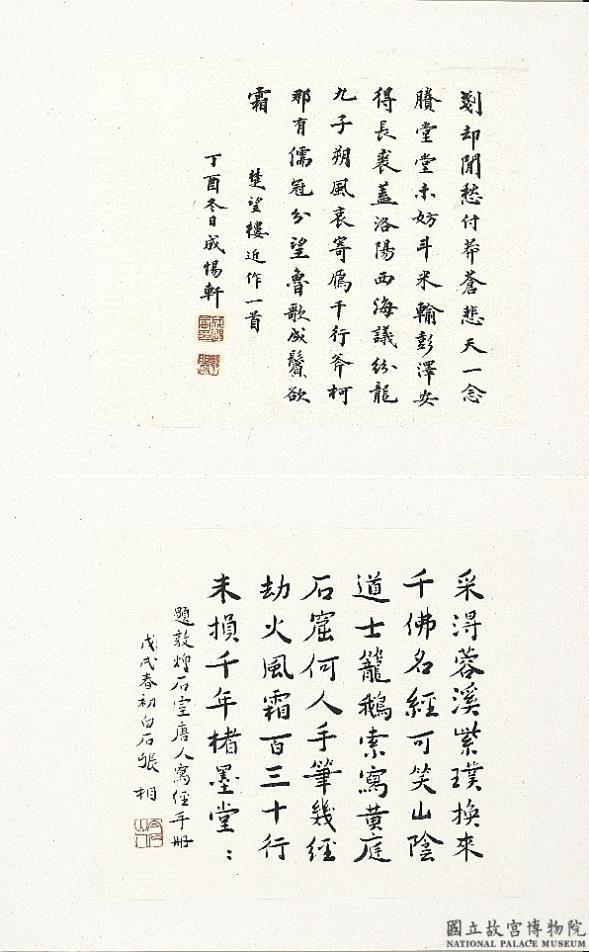 剗却閒愁付莽蒼悲天一念
賸堂堂未妨斗米輸彭澤安
得長裘蓋洛陽西海議紛龍
九子朔風哀寄鴈千行斧柯
那有儒冠分望魯歌成鬢欲
霜
楚望樓近作一首
丁酉冬日成惕軒
采浔蓉溪紫璞換來
千佛名經可笑山陰
道士籠鵝索寫黃庭
石窟何人手筆幾經
劫火風霜百三十行
未損千年楮墨堂:
題敦煌石室唐人寫經手冊
戊戌春初白石張相
國立故宮博物院
NATIONAL PALACE MUSEUM